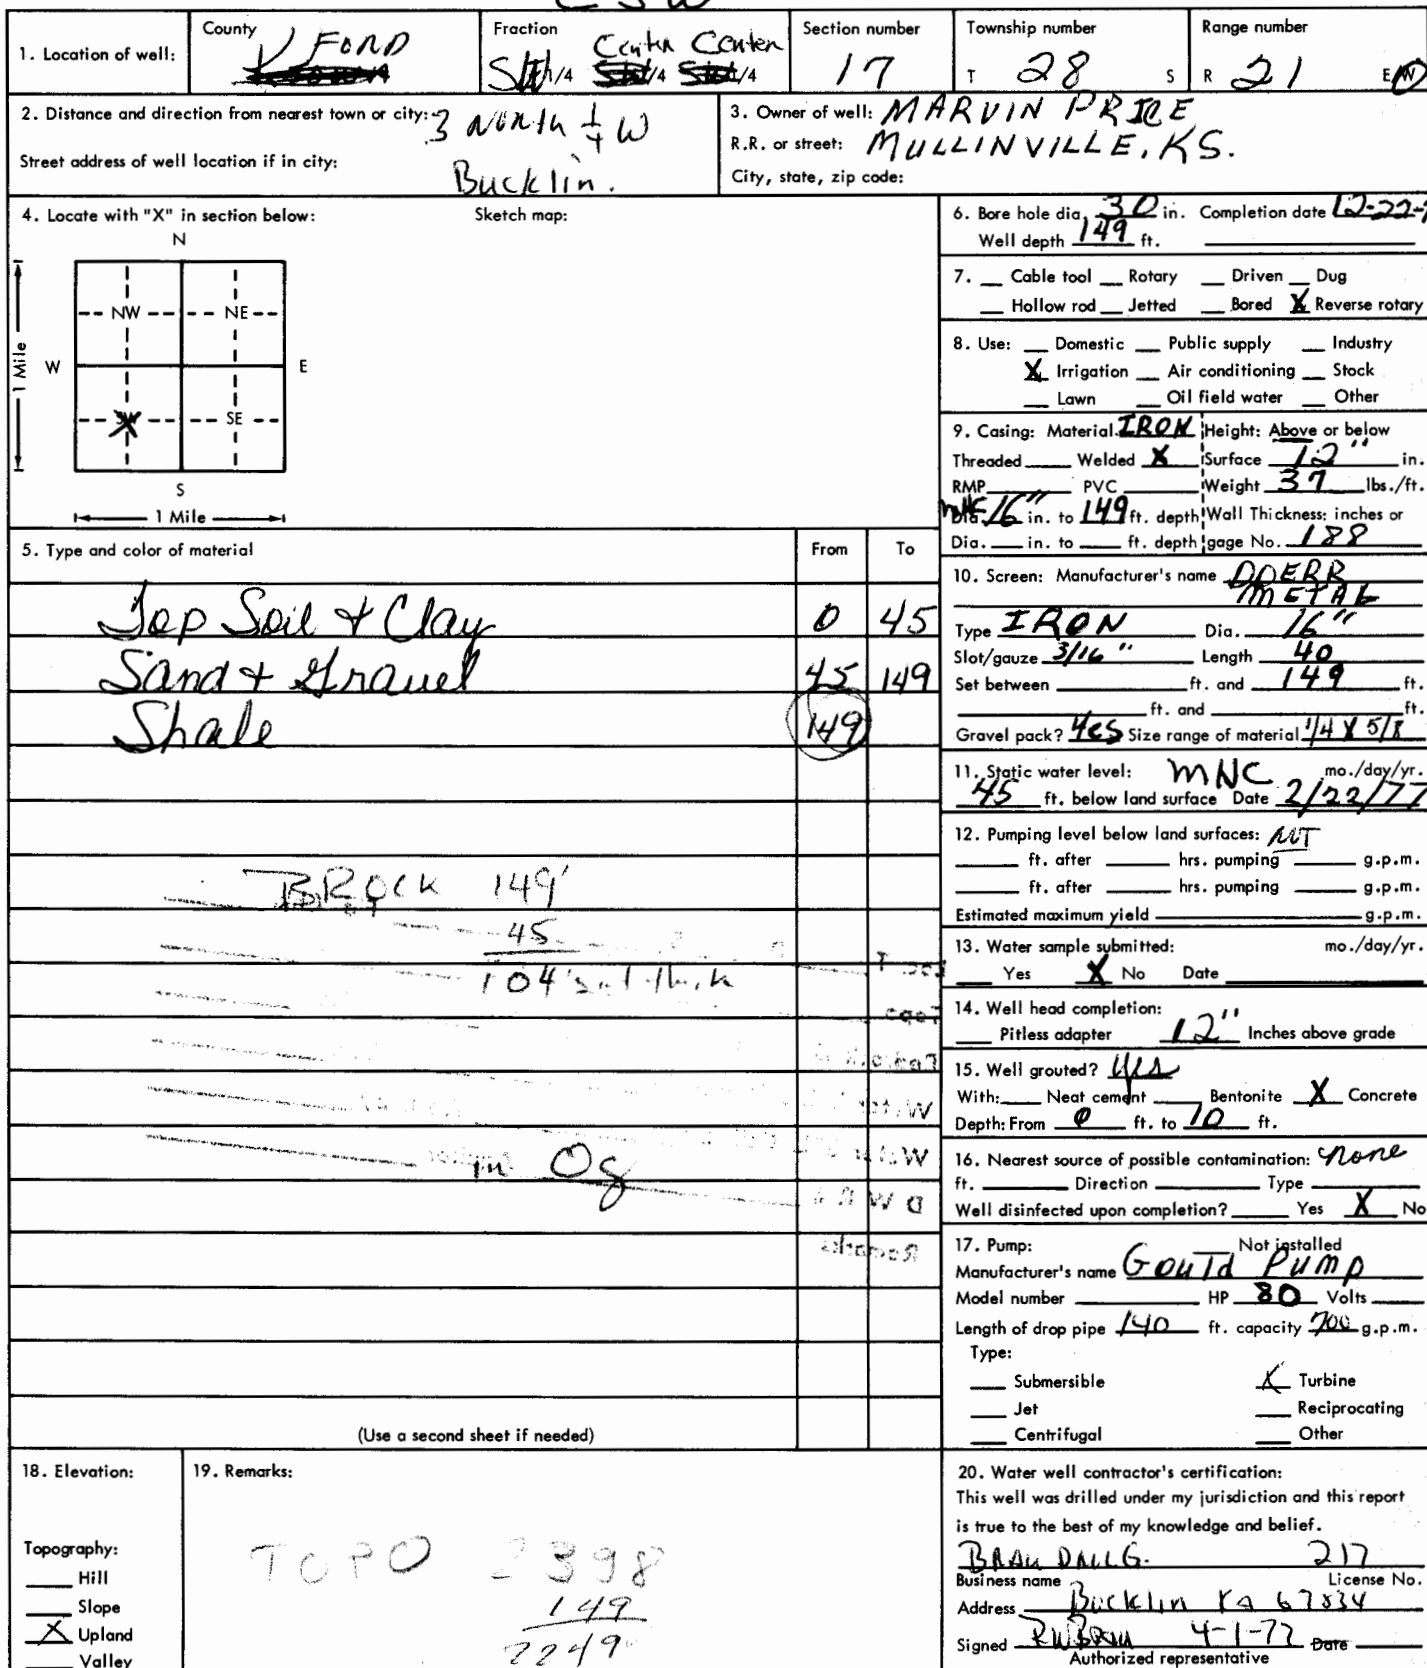 1. Location of well: County FORD Fraction 1/4 Center 1/4 Center 1/4 Section number 17 Township number T 28 S Range number R 21 E W
2. Distance and direction from nearest town or city: 3 North 1/4 W
Street address of well location if in city: Bucklin.
3. Owner of well: MARVIN PRICE
R.R. or street: MULLINVILLE, KS.
City, state, zip code:
4. Locate with "X" in section below: Sketch map:
N
NW NE
1 Mile W E
SW SE
S
1 Mile
6. Bore hole dia. 30 in. Completion date 12-22-
Well depth 149 ft.
7. __ Cable tool __ Rotary __ Driven __ Dug
__ Hollow rod __ Jetted __ Bored X Reverse rotary
8. Use: __ Domestic __ Public supply __ Industry
X Irrigation __ Air conditioning __ Stock
__ Lawn __ Oil field water __ Other
9. Casing: Material IRON Height: Above or below
Threaded ___ Welded X Surface 12" in.
RMP ___ PVC ___ Weight 37 lbs./ft.
Dia. 16" in. to 149 ft. depth Wall Thickness: inches or
Dia. ___ in. to ___ ft. depth gage No. 188
5. Type and color of material From To
Top Soil + Clay 0 45
Sand + Gravel 45 149
Shale 149
BROCK 149'
45
104'
in Og
Remarks
(Use a second sheet if needed)
10. Screen: Manufacturer's name DOERR
METAL
Type IRON Dia. 16"
Slot/gauze 3/16" Length 40
Set between ___ ft. and 149 ft.
___ ft. and ___ ft.
Gravel pack? Yes Size range of material 1/4 X 5/8
11. Static water level: MNC mo./day/yr.
45 ft. below land surface Date 2/22/77
12. Pumping level below land surfaces: NT
___ ft. after ___ hrs. pumping ___ g.p.m.
___ ft. after ___ hrs. pumping ___ g.p.m.
Estimated maximum yield ___ g.p.m.
13. Water sample submitted: mo./day/yr.
__ Yes X No Date ___
14. Well head completion:
__ Pitless adapter 12" Inches above grade
15. Well grouted? yes
With: ___ Neat cement ___ Bentonite X Concrete
Depth: From 0 ft. to 10 ft.
16. Nearest source of possible contamination: none
ft. ___ Direction ___ Type ___
Well disinfected upon completion? ___ Yes X No
17. Pump: Not installed
Manufacturer's name Gould Pump
Model number ___ HP 80 Volts ___
Length of drop pipe 140 ft. capacity 700 g.p.m.
Type:
___ Submersible X Turbine
___ Jet ___ Reciprocating
___ Centrifugal ___ Other
18. Elevation:
Topography:
___ Hill
___ Slope
X Upland
___ Valley
19. Remarks:
TOPO 2398
149
2249
20. Water well contractor's certification:
This well was drilled under my jurisdiction and this report
is true to the best of my knowledge and belief.
217
Business name License No.
Address Bucklin Ka 67834
Signed 4-1-77 Date
Authorized representative